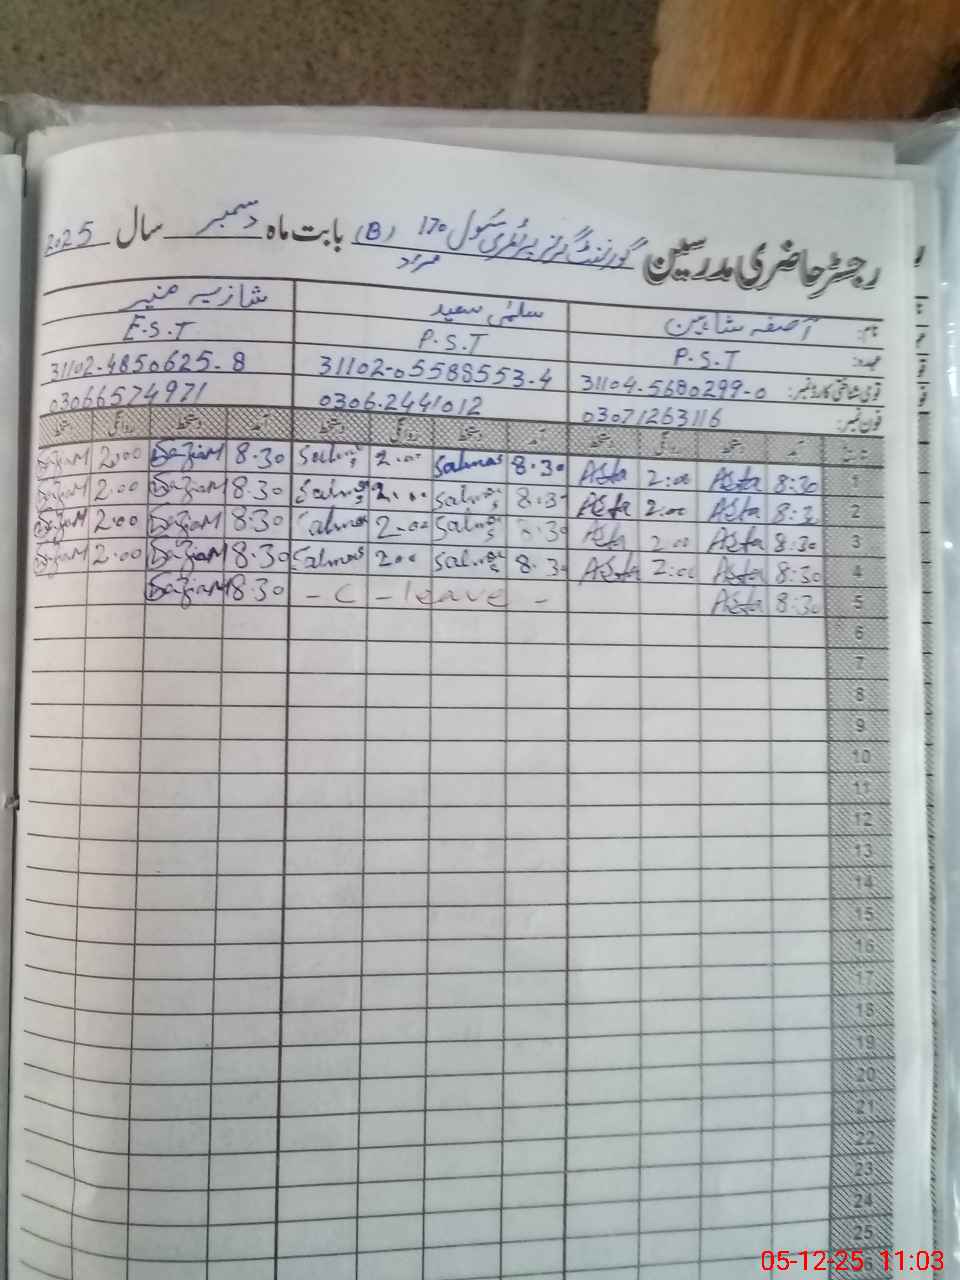 رجسٹر حاضری مدرسین گورنمنٹ گرلز پرائمری سکول 170 (B) بابت ماہ دسمبر سال 2025
مراد
نام: آصفہ شاہین سلمیٰ سعید شازیہ منیر
عہدہ: P.S.T P.S.T E.S.T
قومی شناختی کارڈ نمبر: 31104-5680299-0 31102-05588553-4 31102-4850625-8
فون نمبر: 03071263116 0306-2441012 03066574971
تاریخ آمد دستخط روانگی دستخط آمد دستخط روانگی دستخط آمد دستخط روانگی دستخط
1 8:30 Asfa 2:00 Asfa 8.30 Salma 2.00 Salma 8.30 2.00
2 8:30 Asfa 2:00 Asfa 8.30 Salma 2.00 Salma 8.30 2.00
3 8:30 Asfa 2:00 Asfa 8.30 Salma 2.00 Salma 8.30 2.00
4 8:30 Asfa 2:00 Asfa 8.30 Salma 2.00 Salma 8.30 2.00
5 8:30 Asfa - C - leave - 8.30
6
7
8
9
10
11
12
13
14
15
16
17
18
19
20
21
22
23
24
25
05-12-25 11:03